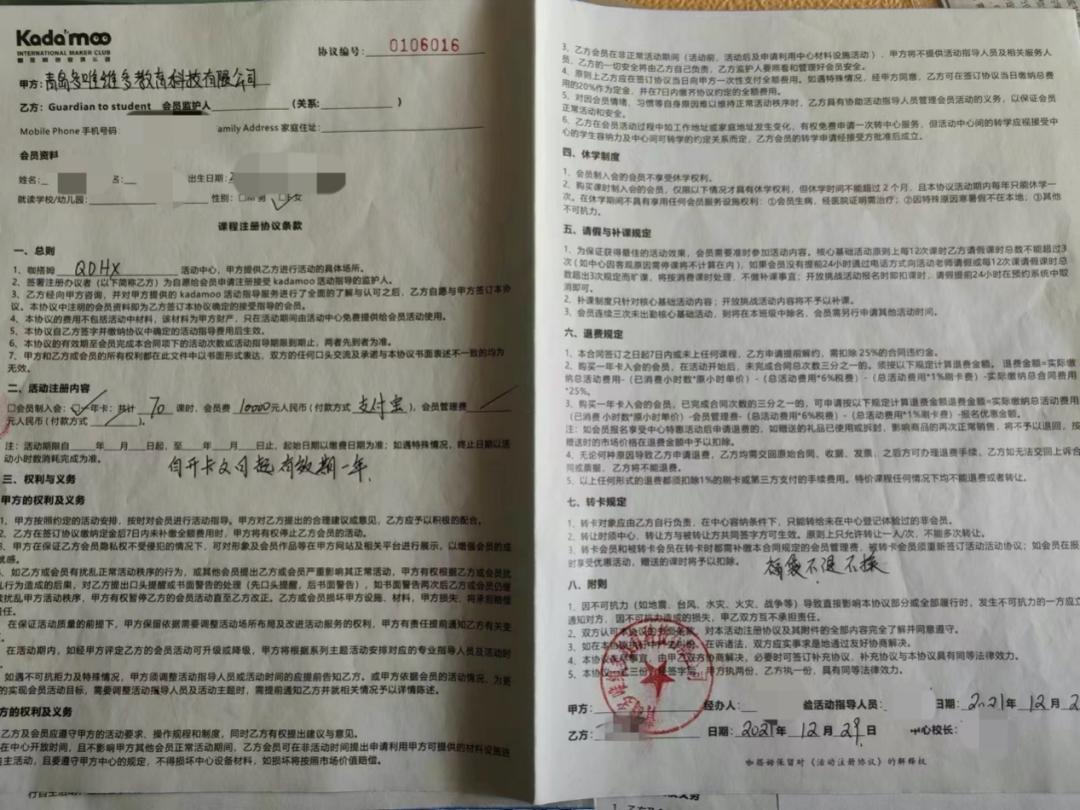 Kada'moo
INTERNATIONAL MAKER CLUB
协议编号: 0106016
甲方: 青岛多唯维多教育科技有限公司
乙方: Guardian to student 会员监护人 (关系: )
Mobile Phone 手机号码: amily Address 家庭住址:
会员资料
姓名: 名: 出生日期:
就读学校/幼儿园: 性别: 女
课程注册协议条款
一、总则
1、咖搭姆 QDHX 活动中心，甲方提供乙方进行活动的具体场所。
2、签署注册办议者（以下简称乙方）为自愿给会员申请注册接受 kadamoo 活动指导的监护人。
3、乙方经向甲方咨询，并对甲方提供的 kadamoo 活动指导服务进行了全面的了解与认可之后，乙方自愿与甲方签订本协
议。本协议中注明的会员资料即为乙方签订本协议确定的接受指导的会员。
4、本协议的费用不包括活动中材料，该材料为甲方财产，只在活动期间由活动中心免费提供给会员活动使用。
5、本协议自乙方签字并缴纳协议中确定的活动指导费用后生效。
6、本协议的有效期至会员完成本合同项下的活动次数或活动指导期限到期止，两者先到者为准。
7、甲方和乙方或会员的所有权利都在此文件中以书面形式表达，双方的任何口头交流及承诺与本协议书面表述不一致的均为
无效。
二、活动注册内容
□会员制入会: 年卡: 共计 70 课时，会员费 10000 元人民币 (付款方式 支付宝)，会员管理费
元人民币 (付款方式 )。
注: 活动期限自 年 月 日起，至 年 月 日止，起始日期以缴费日期为准; 如遇特殊情况，终止日期以活
动小时数消耗完成为准。
自开卡之日起有效期一年.
三、权利与义务
甲方的权利及义务
1、甲方按照约定的活动安排，按时对会员进行活动指导。甲方对乙方提出的合理建议或意见，乙方应予以积极的配合。
2、乙方在签订协议缴纳定金后7日内未补缴全额费用时，甲方将有权停止乙方会员的活动。
3、甲方在保证乙方会员隐私权不受侵犯的情况下，可对形象及会员作品等在甲方网站及相关平台进行展示，以增强会员的成
就感。
、如乙方或会员有扰乱正常活动秩序的行为，或其他会员提出乙方或会员严重影响其正常活动，甲方有权根据乙方或会员扰
乱行为造成的后果，对乙方提出口头提醒或书面警告的处理（先口头提醒，后书面警告），如书面警告两次后乙方或会员仍继
续扰乱甲方活动秩序，甲方有权暂停乙方的会员活动直至乙方改正。乙方或会员损坏甲方设施、材料，甲方损失，将承担赔偿
责任。
、在保证活动质量的前提下，甲方保留依据需要调整活动场所布局及改进活动服务的权利，甲方有责任提前通知乙方有关变
、在活动期内，如经甲方评定乙方的会员活动可升级或降级，甲方将根据系列主题活动安排对应的专业指导人员及活动时
、如遇不可抗拒力及特殊情况，甲方须调整活动指导人员或活动时间的应提前告知乙方。或甲方依据会员的活动情况，为更
的实现会员活动目标，需要调整活动指导人员及活动主题时，需提前通知乙方并就相关情况予以详情陈述。
方的权利及义务
乙方及会员应遵守甲方的活动要求、操作规程和制度，同时乙方有权提出建议与意见。
在中心开放时间，且不影响甲方其他会员正常活动期间，乙方会员可在非活动时间提出申请利用甲方可提供的材料设施进
自主活动，且要遵守甲方中心的规定，不得损坏中心设备材料，如损坏将按照市场价值赔偿。
3、乙方会员在非正常活动期间（活动前，活动后及申请利用中心材料设施活动），甲方将不提供活动指导人员及相关服务人
员，乙方的一切安全将由乙方自己负责，乙方监护人要照看和管理好会员安全。
4、原则上乙方应在签订协议当日向甲方一次性支付全额费用。如遇特殊情况，经甲方同意，乙方可在签订协议当日缴纳总费
用的20%作为定金，并在7日内缴齐协议约定的全额费用。
5、对因会员情绪、习惯等自身原因难以维持正常活动秩序时，乙方具有协助活动指导人员管理会员活动的义务，以保证会员
正常活动和安全。
6、乙方在会员活动过程中如工作地址或家庭地址发生变化，有权免费申请一次转中心服务，但活动中心间的转学应视接受中
心的学生容纳力及中心间可转学的约定关系而定，乙方会员的转学申请经接受方批准后成立。
四、休学制度
1、会员制入会的会员不享受休学权利。
2、购买课时制入会的会员，仅限以下情况才具有休学权利，但休学时间不能超过 2 个月，且本协议活动期内每年只能休学一
次。在休学期间不具有享用任何会员服务设施权利: ①会员生病，经医院证明需治疗; ②因特殊原因寒暑假不在本地; ③其他
不可抗力。
五、请假与补课规定
1、为保证获得最佳的活动效果，会员需要准时参加活动内容。核心基础活动原则上每12次课时乙方请假课时总数不能超过
3次 (如中心因客观原因需停课将不计算在内)，如果会员没有提前24小时通过电话方式向活动老师请假或每12次课请假课时总
数超出3次规定而旷课，将按消费课时处理，不做补课事宜; 开放挑战活动报名时即扣课时，请假提前24小时在预约系统中取
消即可。
2、补课制度只针对核心基础活动内容; 开放挑战活动内容将不予以补课。
3、会员连续三次未出勤核心基础活动，则将在本班级中除名，会员需另行申请其他活动时间。
六、退费规定
1、本合同签订之日起7日内或未上任何课程，乙方申请提前解约，需扣除 25%的合同违约金。
2、购买一年卡入会的会员，在活动开始后，未完成合同总次数三分之一的。须按以下规定计算退费金额。 退费金额=实际缴
纳总活动费用- (已消费小时数*原小时单价) - (总活动费用*6%税费) - (总活动费用*1%刷卡费) -实际缴纳总合同费用
*25%。
3、购买一年卡入会的会员，已完成合同次数的三分之一的，可申请按以下规定计算退费金额退费金额=实际缴纳总活动费用
-(已消费小时数*原小时单价)-会员管理费- (总活动费用*6%税费) - (总活动费用*1%刷卡费) -报名优惠金额。
注: 如会员报名享受中心特惠活动后申请退费的，如赠送的礼品已使用或拆封，影响商品的再次正常销售，将不予以退回，按
赠送时的市场价格在退费金额中予以扣除。
4、无论何种原因导致乙方申请退费，乙方均需交回原始合同、收据、发票，之后方可办理退费手续，乙方如无法交回上诉合
同或票据，乙方将不能退费。
5、以上任何形式的退费都须扣除1%的刷卡或第三方支付的手续费用。特价课程任何情况下均不能退费或者转让。
七、转卡规定
1、转卡对象应由乙方自行负责，在中心容纳条件下，只能转给未在中心登记体验过的非会员。
2、转让时须中心、转让方与被转让方共同签字方可生效。原则上只允许转让一人/次，不能多次转让。
3、转卡会员和被转卡会员在转卡时都需补缴本合同规定的会员管理费，被转卡会员须重新签订活动活动协议; 如会员在报
时享受优惠活动，赠送的课时将予以扣除。
福袋不退不换
八、附则
1、因不可抗力（如地震、台风、水灾、火灾、战争等）导致直接影响本协议部分或全部履行时，发生不可抗力的一方应立
通知对方，因不可抗力造成的损失，甲乙双方互不承担责任。
2、双方认可本协议的书面条款，对本活动注册协议及其附件的全部内容完全了解并同意遵守。
3、如在本协议 在诉诸法，双方应实事求是地通过友好协商解决。
4、本协议 事宜，由甲乙双方协商解决，必要时可签订补充协议，补充协议与本协议具有同等法律效力。
5、本协议一式二份 签字 方执两份，乙方执一份，具同等法律效力。
甲方: 经办人: 活动指导人员: 日期: 2021年 12月 2
乙方: 日期: 2021 年 12 月 29 日 中心校长:
咖搭姆保留对《活动注册协议》的解释权